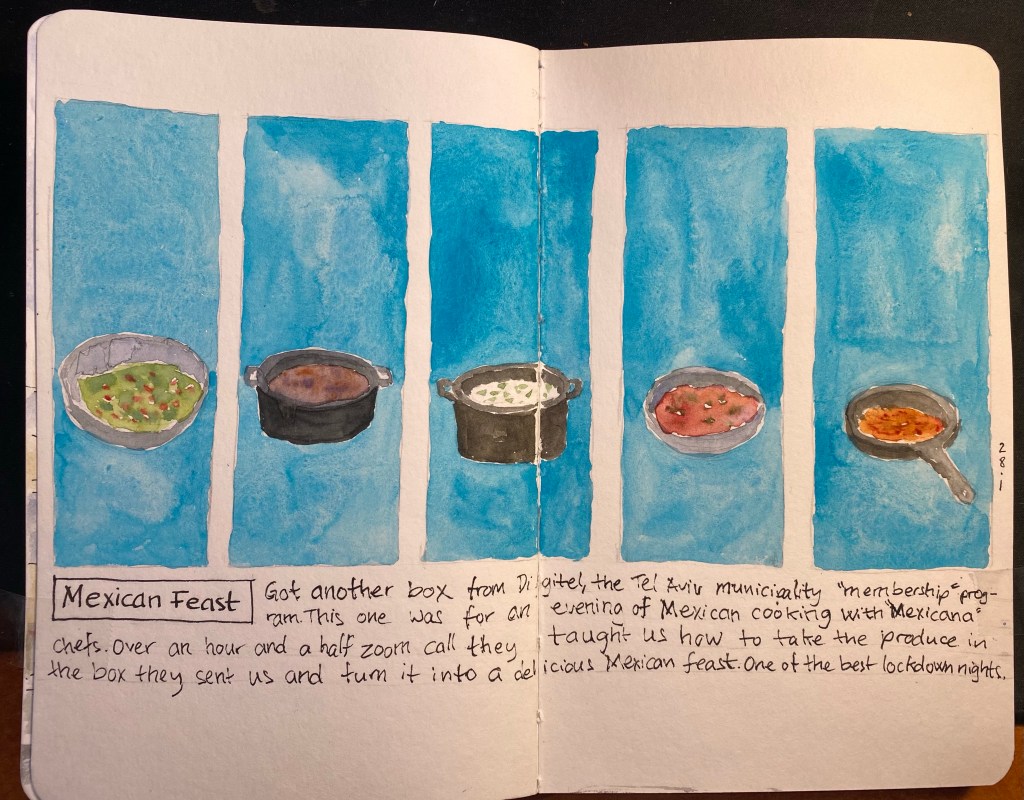 Mexican Feast
Got another box from Digitel, the Tel Aviv municipality "membership" prog-
ram. This one was for an evening of Mexican cooking with "Mexicana"
chefs. Over an hour and a half zoom call they taught us how to take the produce in
the box they sent us and turn it into a delicious Mexican feast. One of the best lockdown nights.
28.1